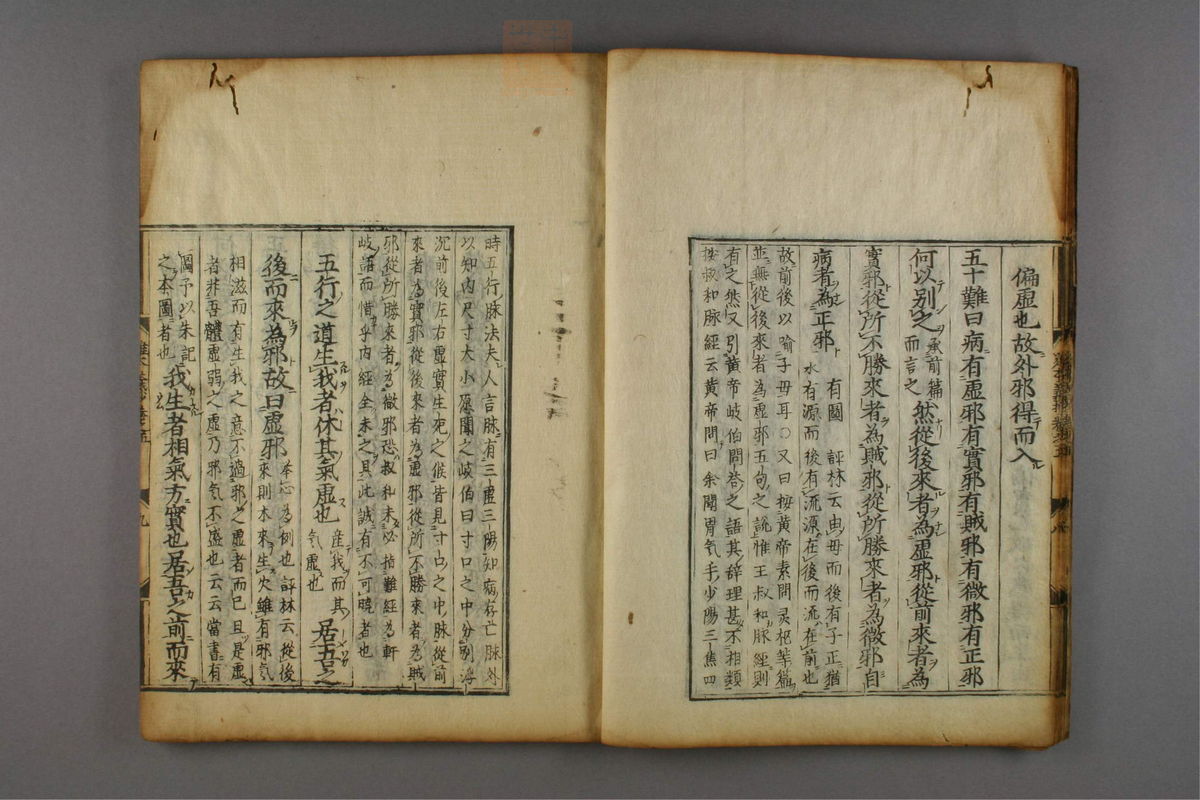 偏虚也故外邪得而入
五十難曰病有虚邪有實邪有賊邪有微邪有正邪
何以別之承前篇而言之然從後來者為虚邪從前來者為
實邪從所不勝來者為賊邪從所勝來者為微邪自
病者為正邪有圖評林云由母而後有子正猶
水有源而後有流源在後而流在前也
故前後以喻子母耳○又曰按黄帝素問灵枢等篇
並無從後來者為虚邪五句之說惟王叔和脉經則
有之然又引黄帝岐伯問答之語其辞理甚不相類
按叔和脉經云黄帝問曰余聞胃氣手少陽三焦四
時五行脉法夫人言脉有三陰三陽知病存亡脉外
以知内尺寸大小願聞之岐伯曰寸口之中分別浮
沉前後左右虚實生死之候皆見寸口之中脉從前
來者為實邪從後來者為虚邪從所不勝來者為賊
邪從所勝來者為微邪恐叔和未必指難經為軒
岐語而惜乎内經全未之具此誠有不可曉者也
五行之道生我者休其氣虚也産我而其氣虚也居吾之
後而來為邪故曰虚邪本心為例也評林云從後
來則木來生火雖有邪氣
相滋而有生我之意不過邪之虚者而已且是虚
者非吾體虚弱之虚乃邪气不盛也云云當書有
圖予以朱記
之本圖者也我生者相氣方實也居吾之前而來